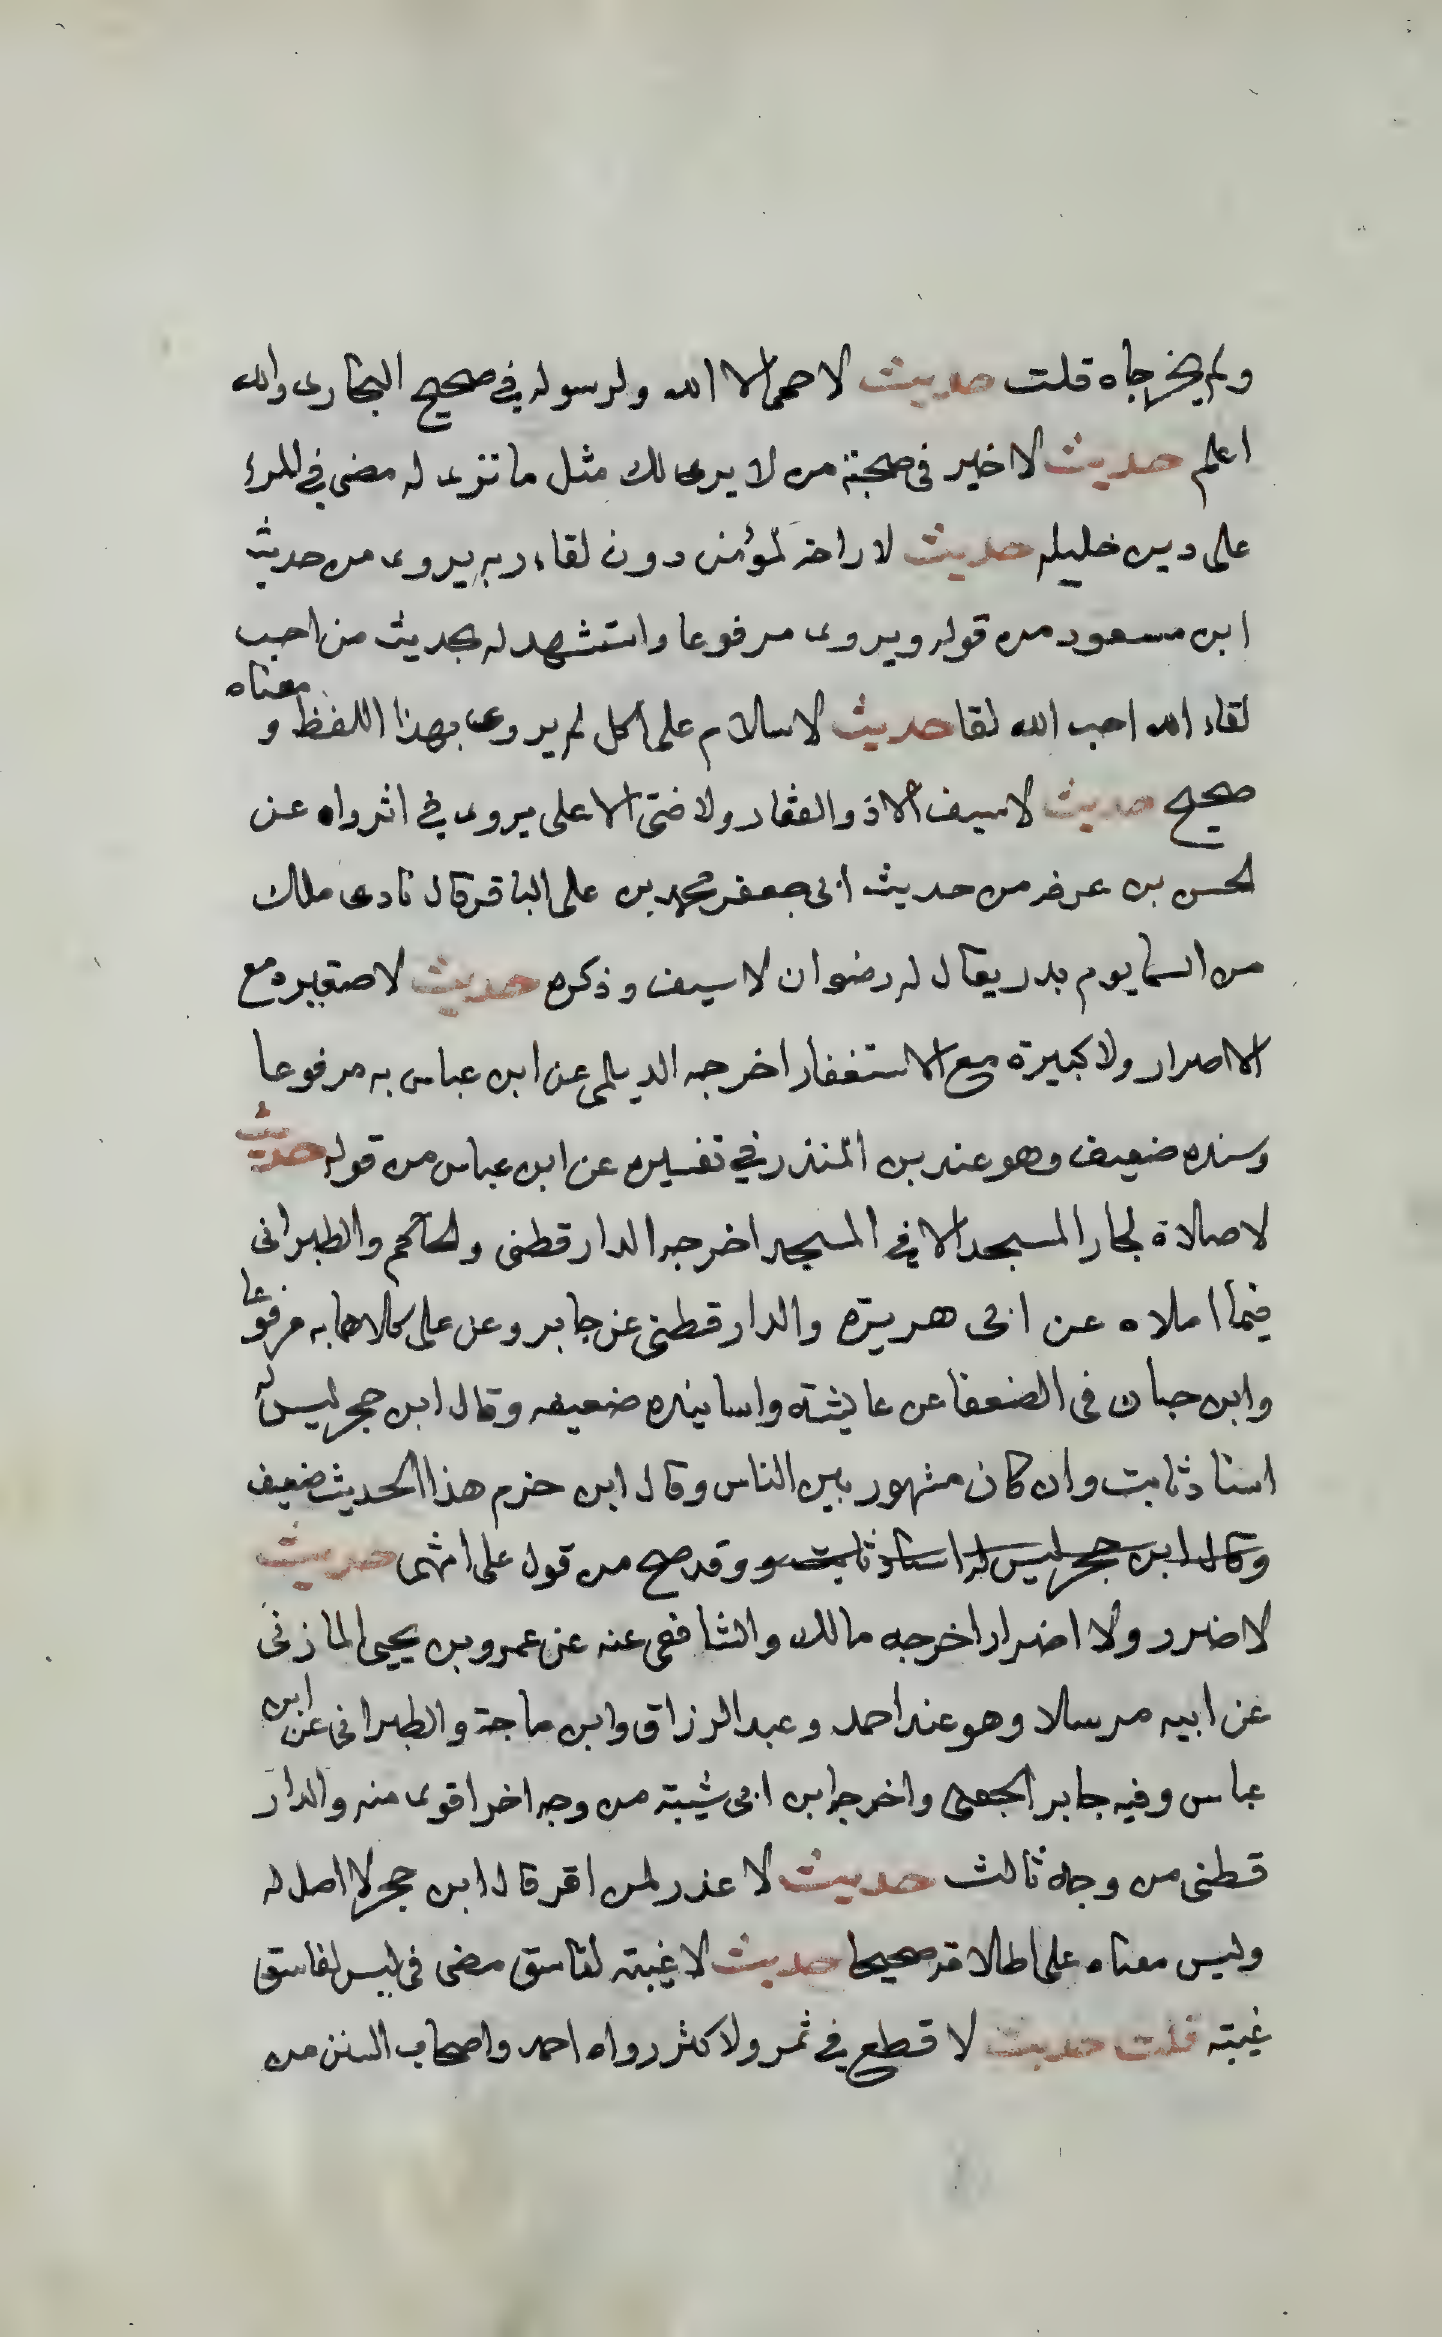 ولم يخرجاه قلت حديث لا حمى الا الله ولرسوله في صحيح البخارى والله
اعلم حديث لا خير فى صحبة من لا يرى لك مثل ما ترى له مضى في المرء
على دين خليله حديث لا راحة لمؤمن دون لقاء ربه يروى من حديث
ابن مسعود من قوله ويروى مرفوعا واستشهد له بحديث من احب
لقاء الله احب الله لقا حديث لا سلام على اكل لم يروى بهذا اللفظ و معناه
صحيح حديث لا سيف الا ذو الفقار ولا فتى الا على يروى في اثر واه عن
الحسن بن عرفة من حديث ابى جعفر محمد بن على الباقر قال نادى ملك
من السما يوم بدر يقال له رضوان لا سيف وذكره حديث لا صغيره مع
الاصرار ولا كبيرة مع الاستغفار اخرجه الديلمى عن ابن عباس به مرفوعا
وسنده ضعيف وهو عند بن المنذر في تفسيره عن ابن عباس من قوله حديث
لا صلاة لجار المسجد الا في المسجد اخرجه الدارقطنى والحاكم والطبرانى
فيما املاه عن ابى هريرة والدارقطنى عن جابر وعن على كلاهما به مرفوعا
وابن حبان فى الضعفا عن عايشة واسانيده ضعيفه وقال ابن حجر ليس له
اسناد ثابت وان كان مشهور بين الناس وقال ابن حزم هذا الحديث ضعيف
وقال ابن حجر ليس له اسناد ثابت و وقد صح من قول على انتهى حديث
لا ضرر ولا اضرار اخرجه مالك والشافعى عنه عن عمرو بن يحيى المازنى
عن ابيه مرسلا وهو عند احمد وعبد الرزاق وابن ماجة والطبرانى عن ابن
عباس وفيه جابر الجعفى واخرجه ابن ابى شيبة من وجه اخر اقوى منه والدار
قطنى من وجه ثالث حديث لا عذر لمن اقر قال ابن حجر لا اصل له
وليس معناه على اطلاقه صحيحا حديث لا غيبة لفاسق مضى فى ليس لفاسق
غيبة قلت حديث لا قطع في ثمر ولا كثر رواه احمد واصحاب السنن من